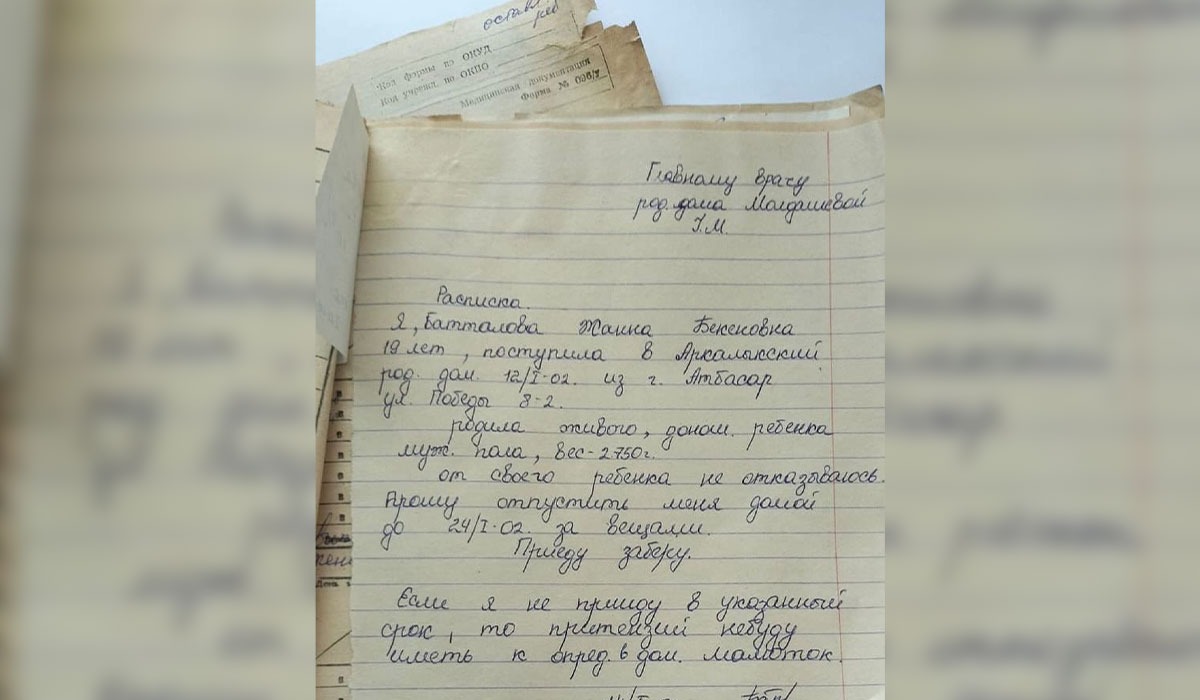 остав
реб
Код формы по ОКУД
Код учрежд. по ОКПО
Медицинская документация
Форма № 096/у
Главному врачу
род. дома Молдашевой
Г.М.
Расписка.
Я, Батталова Жанна Бекеновна
19 лет, поступила в Аркалыкский
род. дом. 12/I-02. из г. Атбасар
ул. Победы 8-2.
родила живого, донош. ребенка
муж. пола, вес-2750г.
от своего ребенка не отказываюсь.
Прошу отпустить меня домой
до 24/I-02. за вещами.
Приеду заберу.
Если я не прииду в указанный
срок, то притензий небуду
иметь к опред. в дом. малюток.